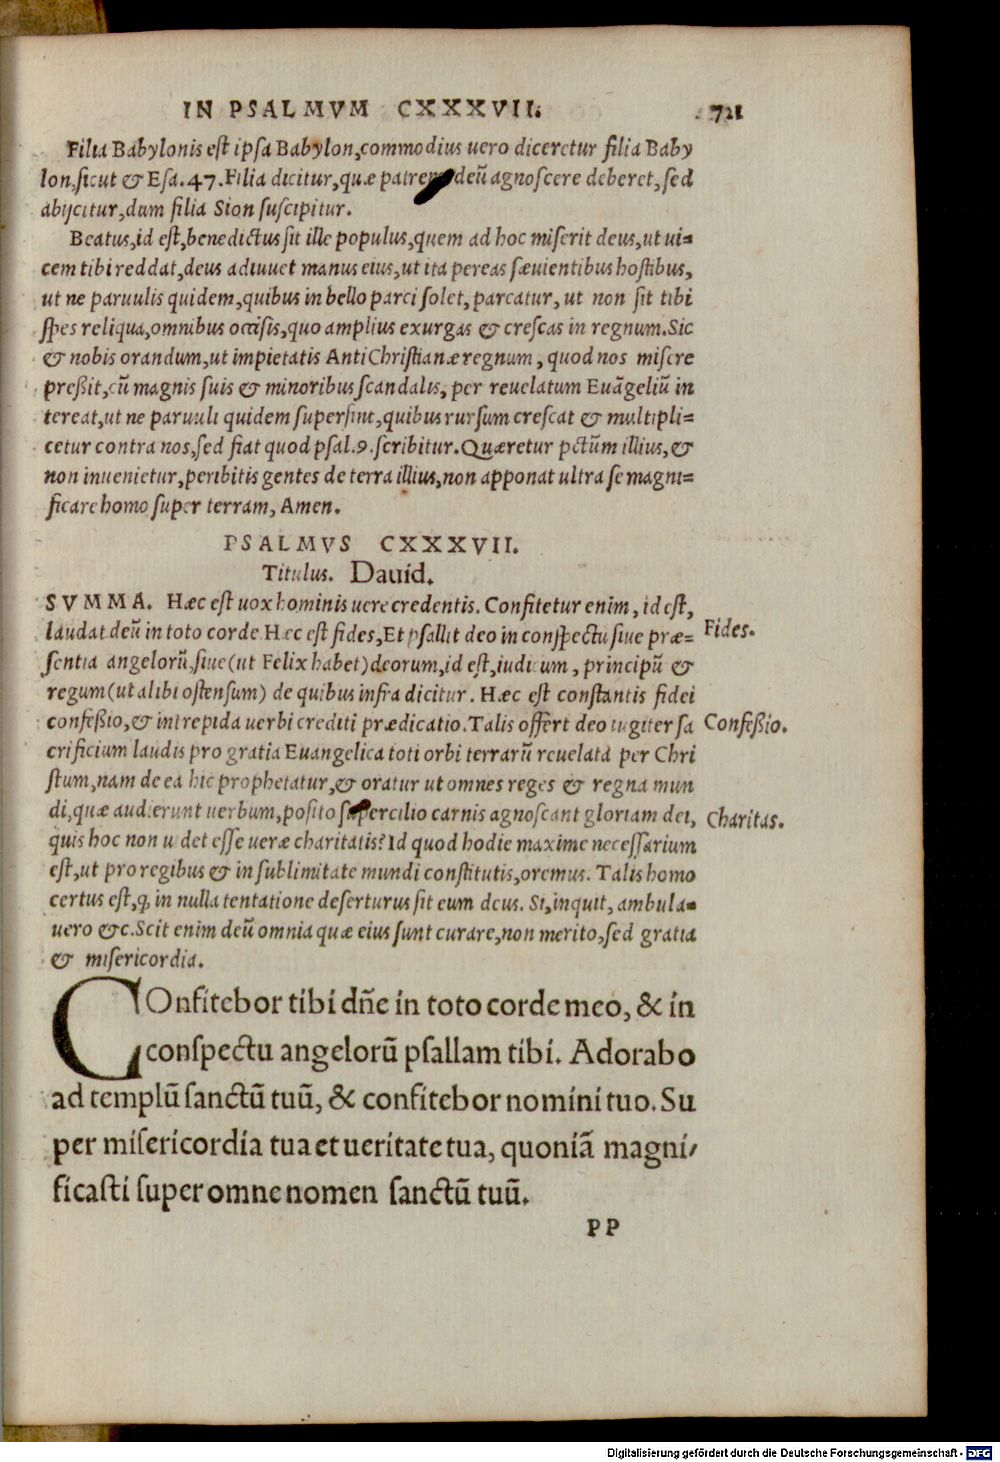 IN PSALMVM CXXXVII. 721
Filia Babylonis est ipsa Babylon, commodius uero diceretur filia Baby
lon, sicut & Esa. 47. Filia dicitur, quæ patrem deū agnoscere deberet, sed
abijcitur, dum filia Sion suscipitur.
Beatus, id est, benedictus sit ille populus, quem ad hoc miserit deus, ut ui=
cem tibi reddat, deus adiuuet manus eius, ut ita pereas sæuientibus hostibus,
ut ne paruulis quidem, quibus in bello parci solet, parcatur, ut non sit tibi
spes reliqua, omnibus occisis, quo amplius exurgas & crescas in regnum. Sic
& nobis orandum, ut impietatis AntiChristianæ regnum, quod nos misere
preßit, cū magnis suis & minoribus scandalis, per reuelatum Euāgeliū in
tereat, ut ne paruuli quidem supersint, quibus rursum crescat & multipli=
cetur contra nos, sed fiat quod psal. 9. scribitur. Quæretur pctūm illius, &
non inuenietur, peribitis gentes de terra illius, non apponat ultra se magni=
ficare homo super terram, Amen.
PSALMVS CXXXVII.
Titulus. Dauid.
SVMMA. Hæc est uox hominis uere credentis. Confitetur enim, id est,
laudat deū in toto corde Hæc est fides, Et psallit deo in conspectu siue præ= Fides.
sentia angelorū, siue (ut Felix habet) deorum, id est, iudicum, principū &
regum (ut alibi ostensum) de quibus infra dicitur. Hæc est constantis fidei
confeßio, & intrepida uerbi crediti prædicatio. Talis offert deo iugiter sa Confeßio.
crificium laudis pro gratia Euangelica toti orbi terrarū reuelata per Chri
stum, nam de ea hic prophetatur, & oratur ut omnes reges & regna mun
di, quæ audierunt uerbum, posito supercilio carnis agnoscant gloriam dei, Charitas.
quis hoc non uidet esse ueræ charitatis? Id quod hodie maxime necessarium
est, ut pro regibus & in sublimitate mundi constitutis, oremus. Talis homo
certus est, ꝙ in nulla tentatione deserturus sit eum deus. Si, inquit, ambula=
uero &c. Scit enim deū omnia quæ eius sunt curare, non merito, sed gratia
& misericordia.
COnfitebor tibi dñe in toto corde meo, & in
conspectu angelorū psallam tibi. Adorabo
ad templū sanctū tuū, & confitebor nomini tuo. Su
per misericordia tua et ueritate tua, quoniā magni/
ficasti super omne nomen sanctū tuū.
PP
Digitalisierung gefördert durch die Deutsche Forschungsgemeinschaft - DFG